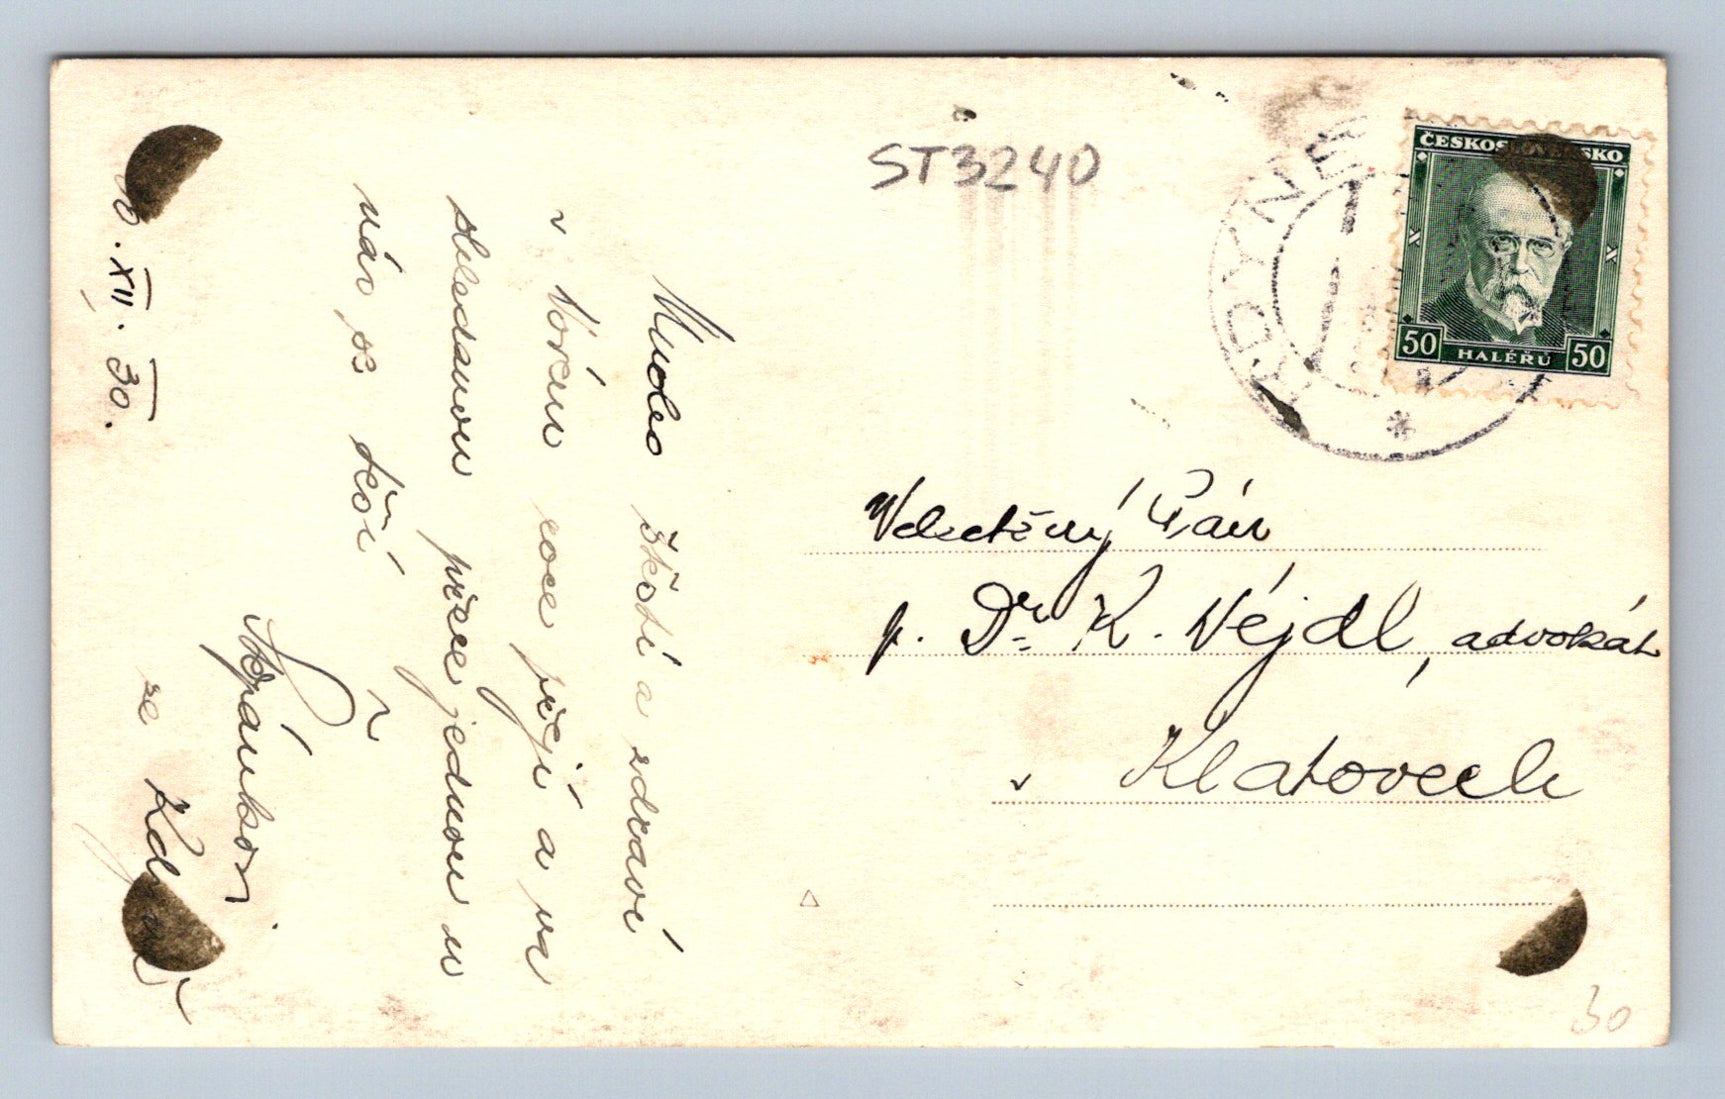 ST3240
KDYNĚ
ČESKOSLOVENSKO
50 HALÉŘŮ 50
Mnoho štěstí a zdraví
v Novém roce přeji a na
shledanou přece jednou u
nás se těší
ze Kdyně
30. XII. 30.
Velectěný Pán
p. Dr. K. Vejdl, advokát
v Klatovech
30